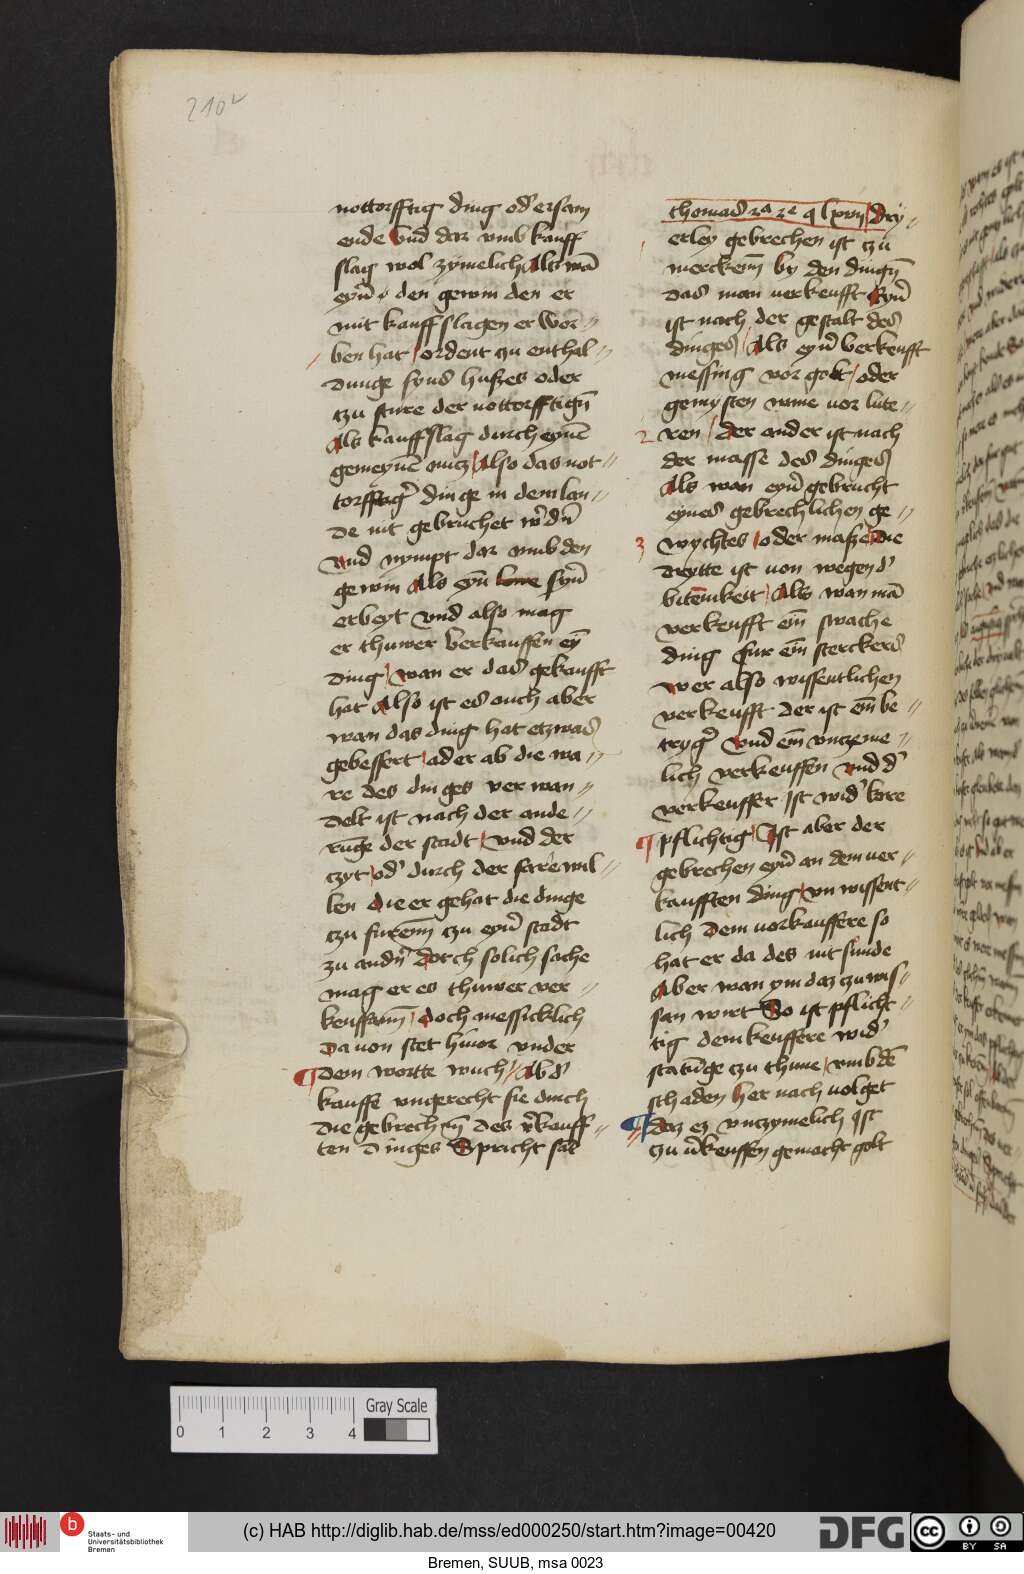 210v
nottorfftig ding od' ersam
ende Vnd dar vmb kauff
slag wol zymelich Als wā
eyn' den gewin den er
mit kauffslagen er wor-
ben hat / ordent zu enthal-
dunge syns huſzes oder
tzu sture der nottorfftigē
Als kauffslag durch eynē
gemeynē nucz / Also das not-
torfftig' dinge in dem lan-
de nit gebruchet w'dn̄
vnd nympt dar vmb den
gewin Als eyn syn'
erbeyt vnd also mag
er thuwer verkauffen eȳ
ding / wan er das gekaufft
hat Also ist es auch aber
wan das ding hat etzwas
gebessert / ader ab die wa-
re des dinges ver wan-
delt ist nach der ande-
runge der stadt / vnd der
tzyt / od' durch der fare wil-
len die er gehat die dinge
tzu furenn tzu eyn' stadt
zu and'n Dorch solich sache
mag er es thuwer ver-
keuffenn / doch messicklich
Da uon stet hiuor vnder
dem wortte wuch / Ab d'
kauffe vngerecht sie durch
die gebrechen des v'kauff-
ten dinges Spricht sāt
thomas 2a 2e q lxxvii / dry-
erley gebrechen ist czu
merckenn by den dingn̄
das man uerkeufft Eyn'
ist nach der gestalt des
dinges / Als eyn' verkeufft
messing vor golt / oder
gemysten wine uor lute-
2 ren / der ander ist nach
der masse des dinges
Als wan eyn' gebrucht
eynes gebrechlichen ge-
3 wychtes / oder maſze die
drytte ist uon wegen d'
bitemkeit / Als wan mā
verkeufft eim swache
ding fur eim sterckers
wer also wissentlichen
verkeufft der ist eim be-
tryg' vnd eim vnczeme-
lich verkeuffen vnd d'
verkeuffer ist wid' kore
pflichtig / Ist aber der
gebrechen eyn' an dem uer-
kaufften ding / vn wissent-
lich dem uorkauffere so
hat er da des nit sunde
Aber wan ym daz zu wis-
san wirt So ist pflicht-
tig dem keuffere wid'
statūge tzu thune / vmb dē
schaden her nach uolget
daz ez vnczymelich ist
tzu u'keuffen gemacht golt
0 1 2 3 4
Gray Scale
b
Staats- und
Universitätsbibliothek
Bremen
(c) HAB http://diglib.hab.de/mss/ed000250/start.htm?image=00420
DFG
cc
BY SA
Bremen, SUUB, msa 0023